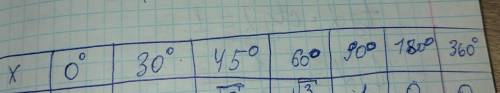 x 0° 30° 45° 60° 90° 180° 360°